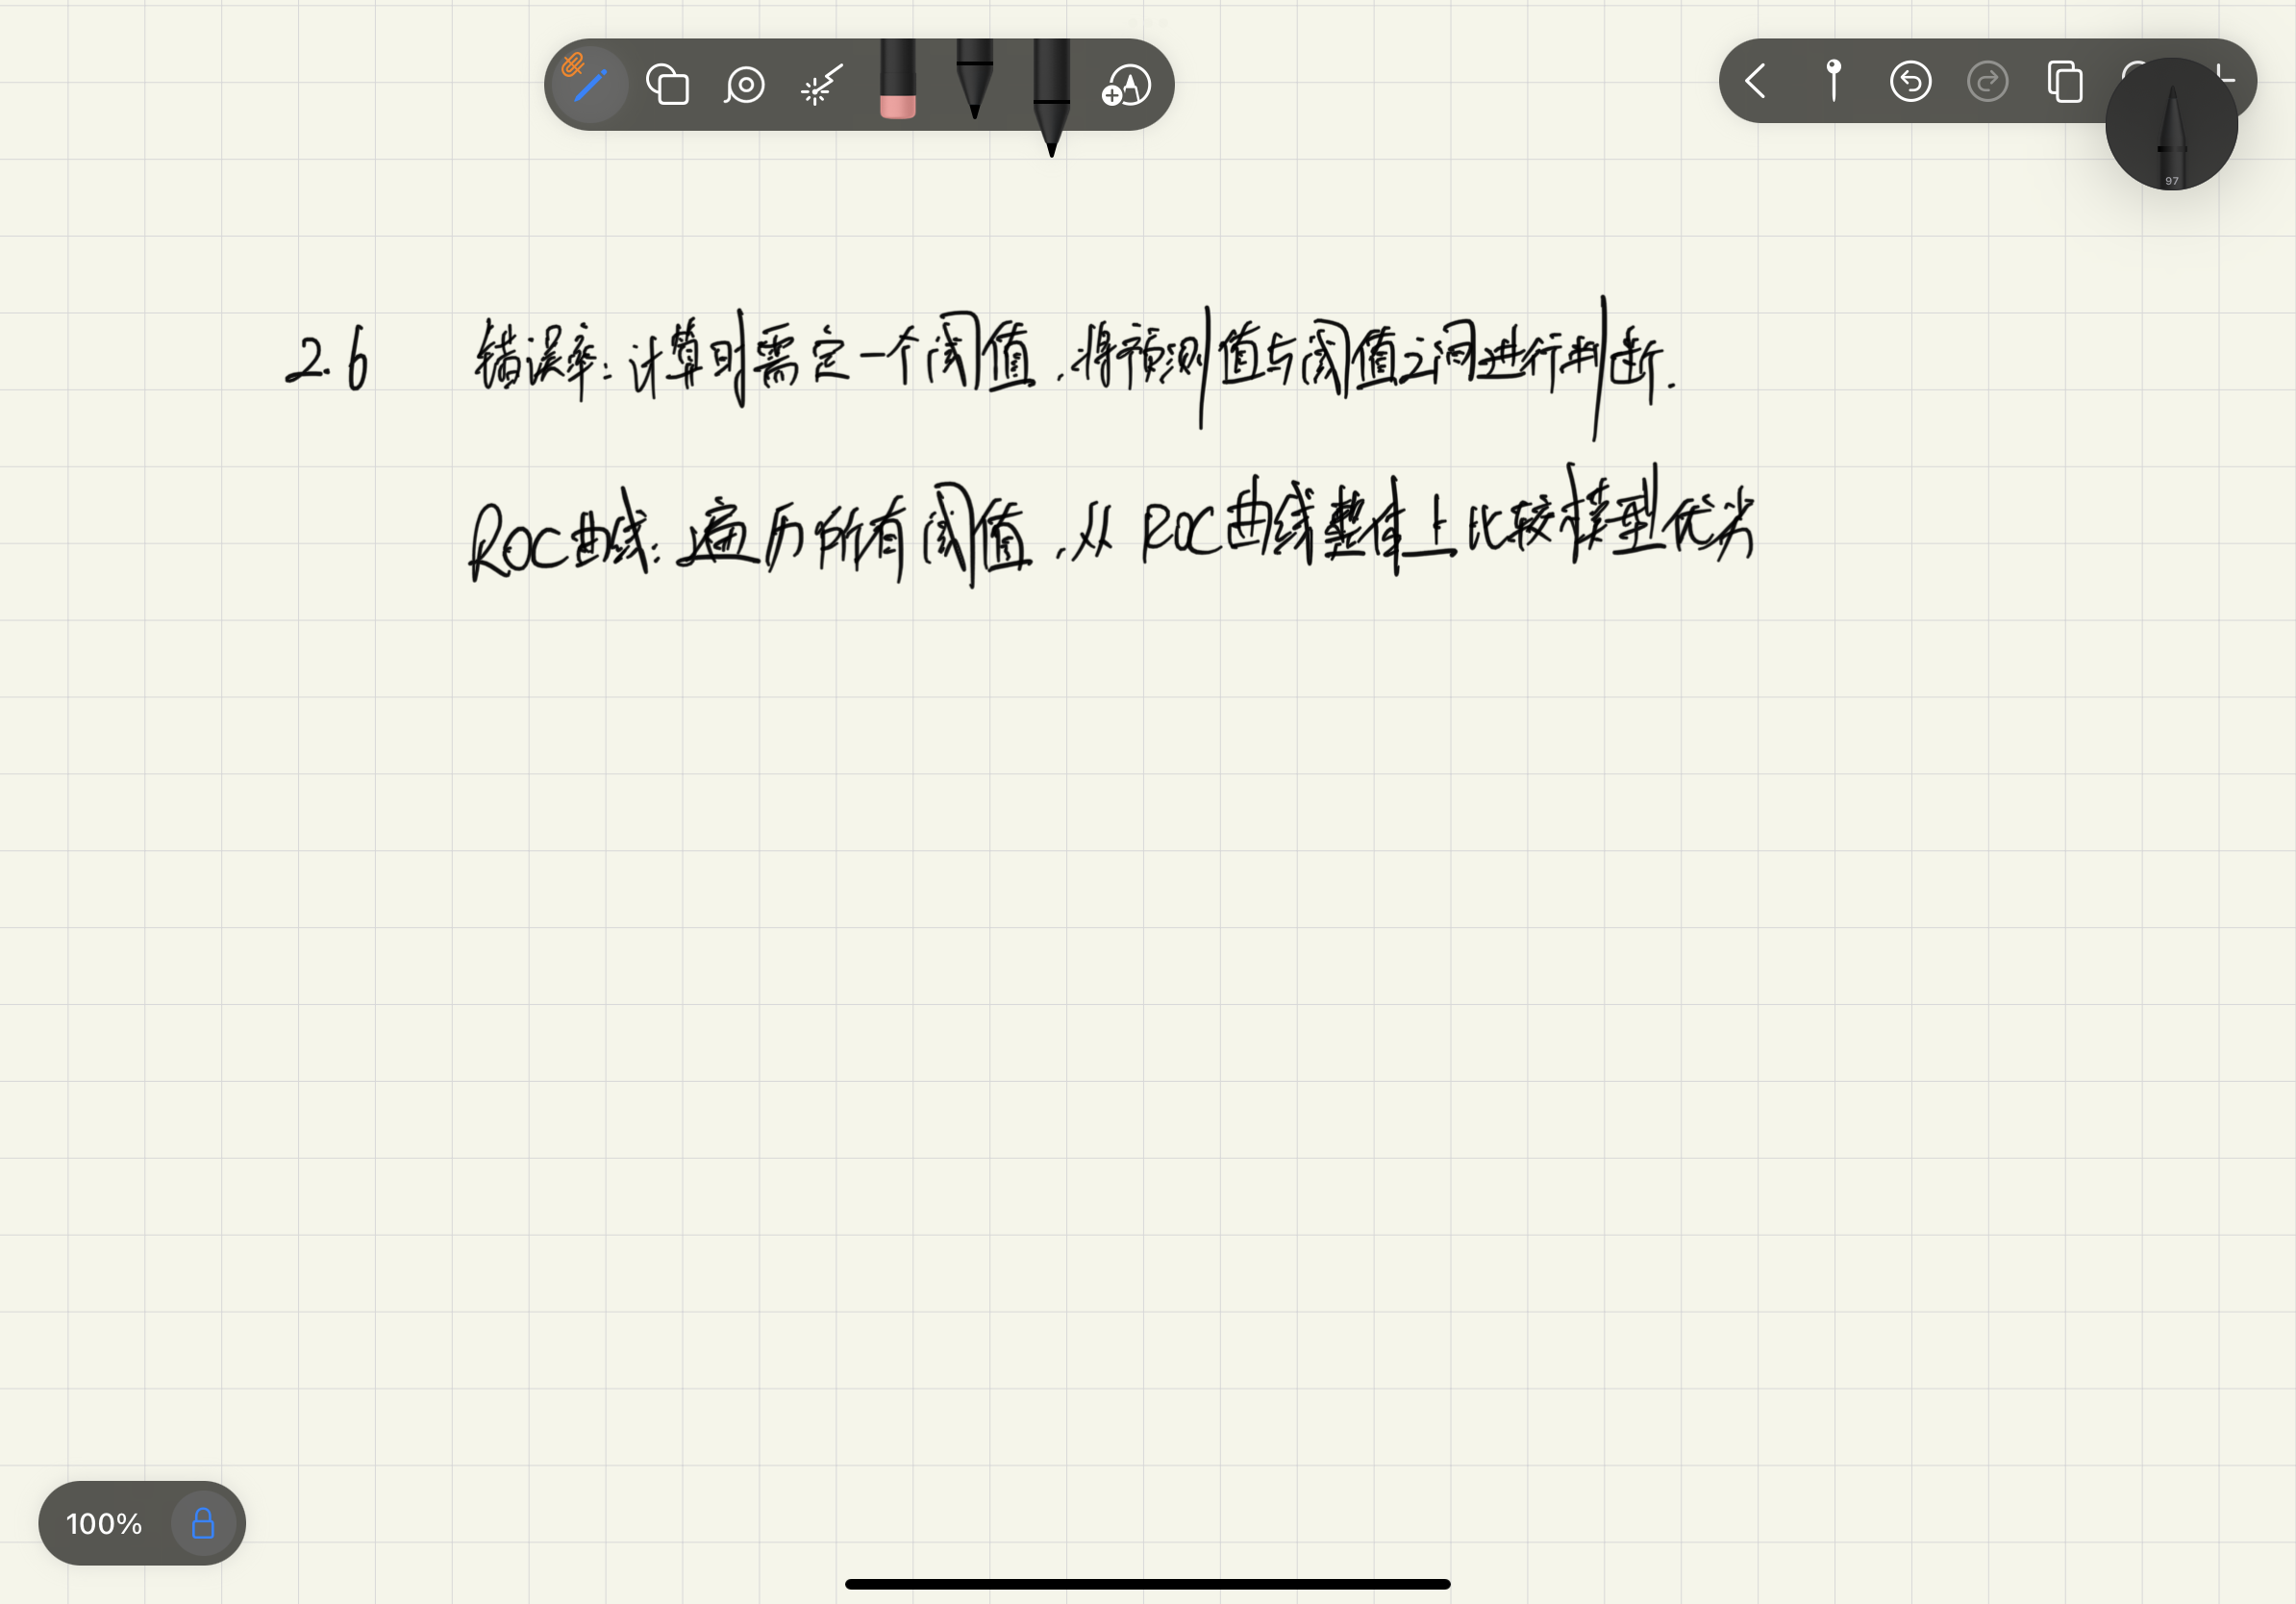 97
2.6 错误率:计算时需定一个阈值,将预测值与阈值之间进行判断.
ROC曲线:遍历所有阈值,从ROC曲线整体上比较模型优劣
100%